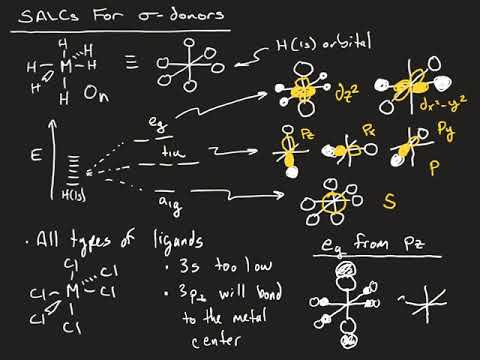 SALCs For σ-donors
H
H
H M H
H
H
Oh
≡
H(1s) orbital
dz²
dx²-y²
E
H(1s)
eg
t1u
a1g
Pz
Px
Py
P
S
• All types of ligands
Cl
Cl
Cl M Cl
Cl
Cl
• 3s too low
• 3pz will bond
to the metal
center
eg from Pz